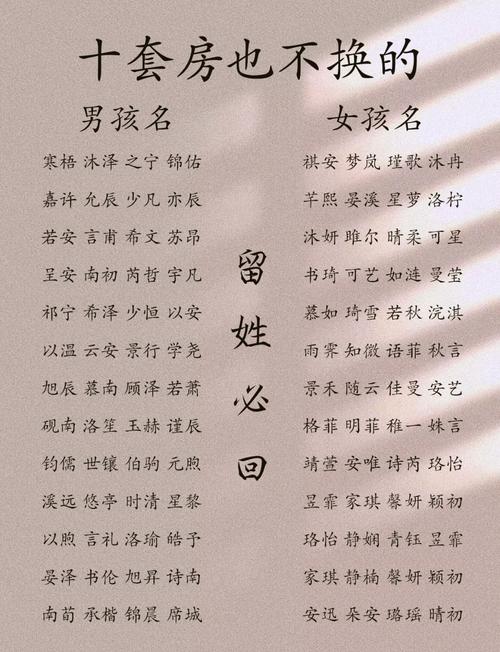 十套房也不换的
男孩名
寒梧 沐泽 之宁 锦佑
嘉许 允辰 少凡 亦辰
若安 言甫 希文 苏昂
呈安 南初 芮哲 宇凡
祁宁 希泽 少恒 以安
以温 云安 景行 学尧
旭辰 慕南 顾泽 若萧
砚南 洛笙 玉赫 谨辰
钧儒 世镶 伯驹 元煦
溪远 悠亭 时清 星黎
以煦 言礼 洛瑜 皓予
晏泽 书伦 旭昇 诗南
南荀 承楷 锦晨 席城
留姓必回
女孩名
祺安 梦岚 瑾歌 沐冉
芊熙 晏溪 星萝 洛柠
沐妍 雎尔 晴柔 可星
书琦 可艺 如涟 曼莹
慕如 琦雪 若秋 浣淇
雨霁 知微 语菲 秋言
景禾 随云 佳曼 安艺
格菲 明菲 稚一 姝言
靖萱 安唯 诗芮 珞怡
昱霏 家琪 馨妍 颖初
珞怡 静娴 青钰 昱霏
家琪 静楠 馨妍 颖初
安迅 朵安 璐瑶 晴初